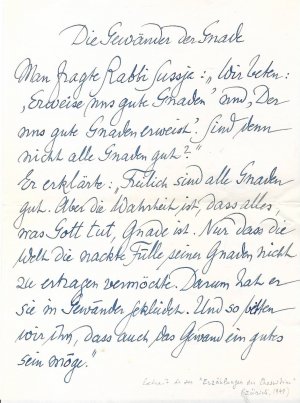 Die Gewänder der Gnade
Man fragte Rabbi Sussja: „Wir beten:
‚Erweise uns gute Gnaden’ und, Der
uns gute Gnaden erweist’. Sind denn
nicht alle Gnaden gut?“
Er erklärte: „Freilich sind alle Gnaden
gut. Aber die Wahrheit ist, dass alles,
was Gott tut, Gnade ist. Nur dass die
Welt die nackte Fülle seiner Gnaden nicht
zu ertragen vermöchte. Darum hat er
sie in Gewänder gekleidet. Und so bitten
wir ihn, dass auch das Gewand ein gutes
sein möge.“
"Erzählungen der Chassidim"
(Zürich, 1949)